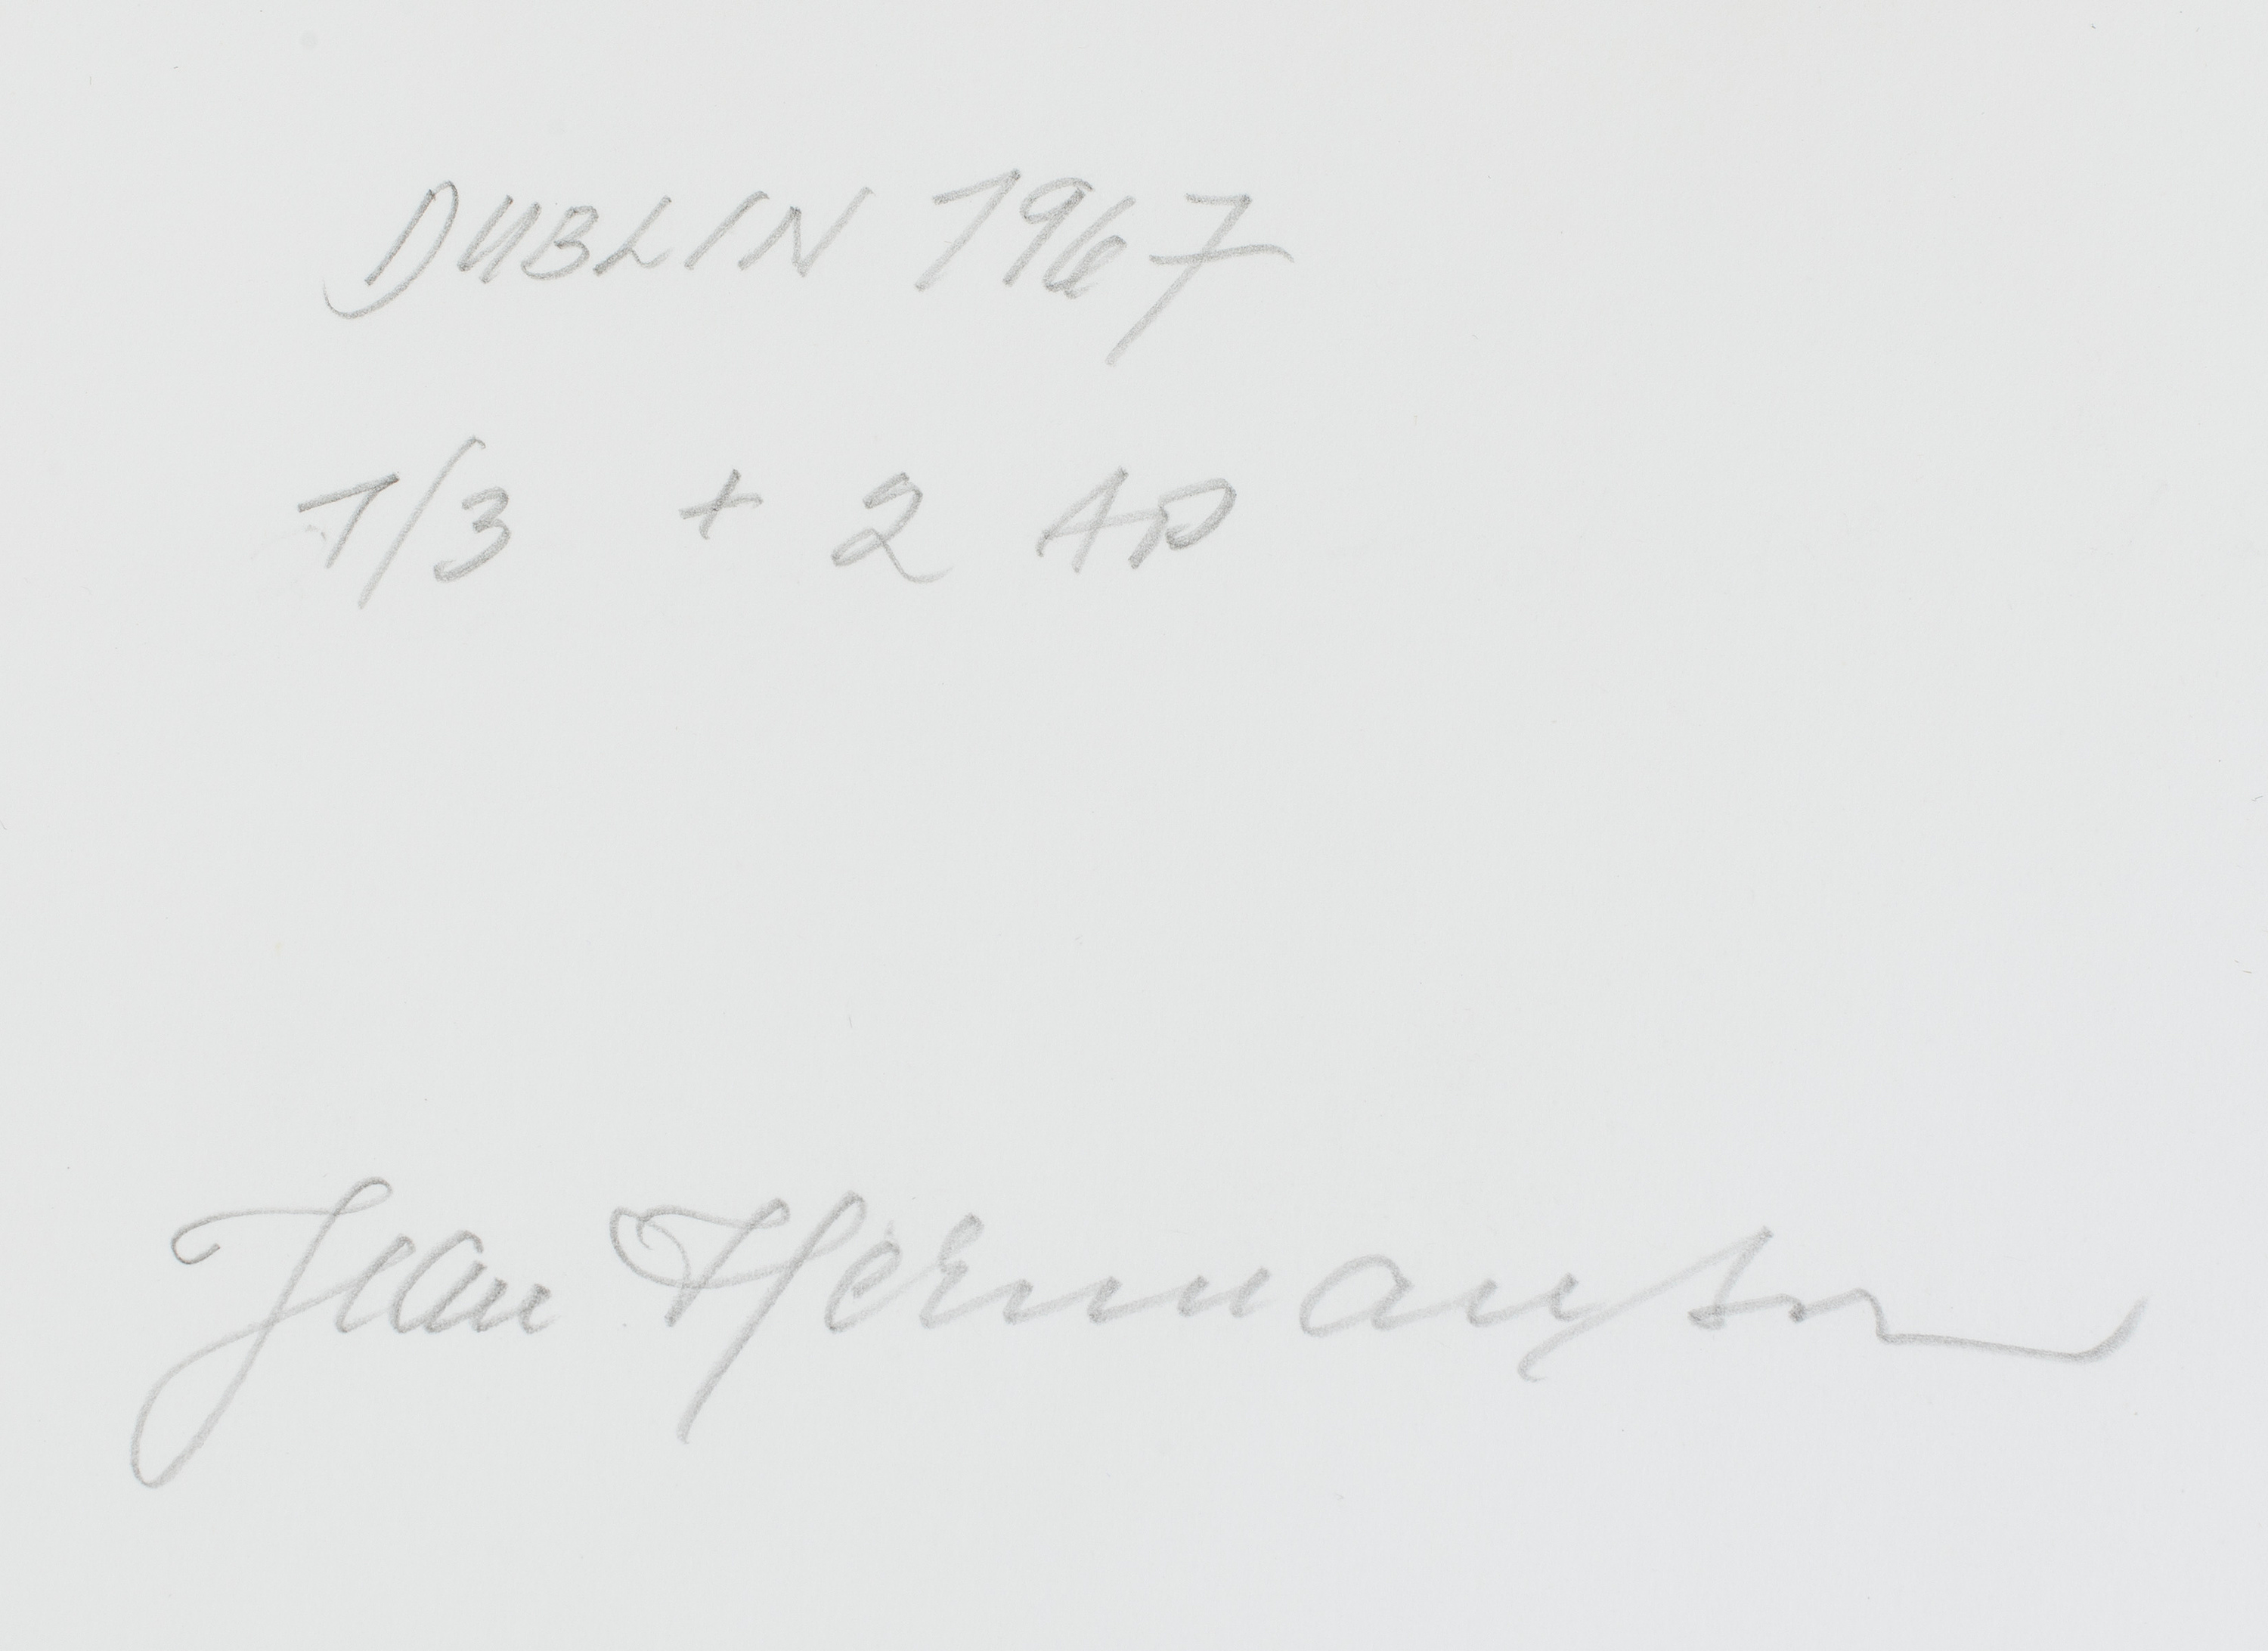 DUBLIN 1967
1/3 + 2 AP
Jean Hermanson